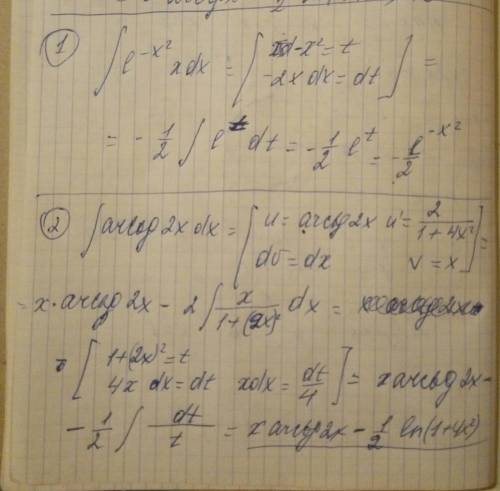 ① ∫ e^{-x²} x dx = [ -x² = t
-2x dx = dt ] =
= -1/2 ∫ e^t dt = -1/2 e^t = -e^{-x²}/2
② ∫ arctg 2x dx = [ u = arctg 2x u' = 2/(1+4x²)
dv = dx v = x ] =
= x · arctg 2x - 2 ∫ x/(1+(2x)²) dx =
[ 1+(2x)² = t
4x dx = dt xdx = dt/4 ] = x arctg 2x -
- 1/2 ∫ dt/t = x arctg 2x - 1/2 ln(1+4x²)